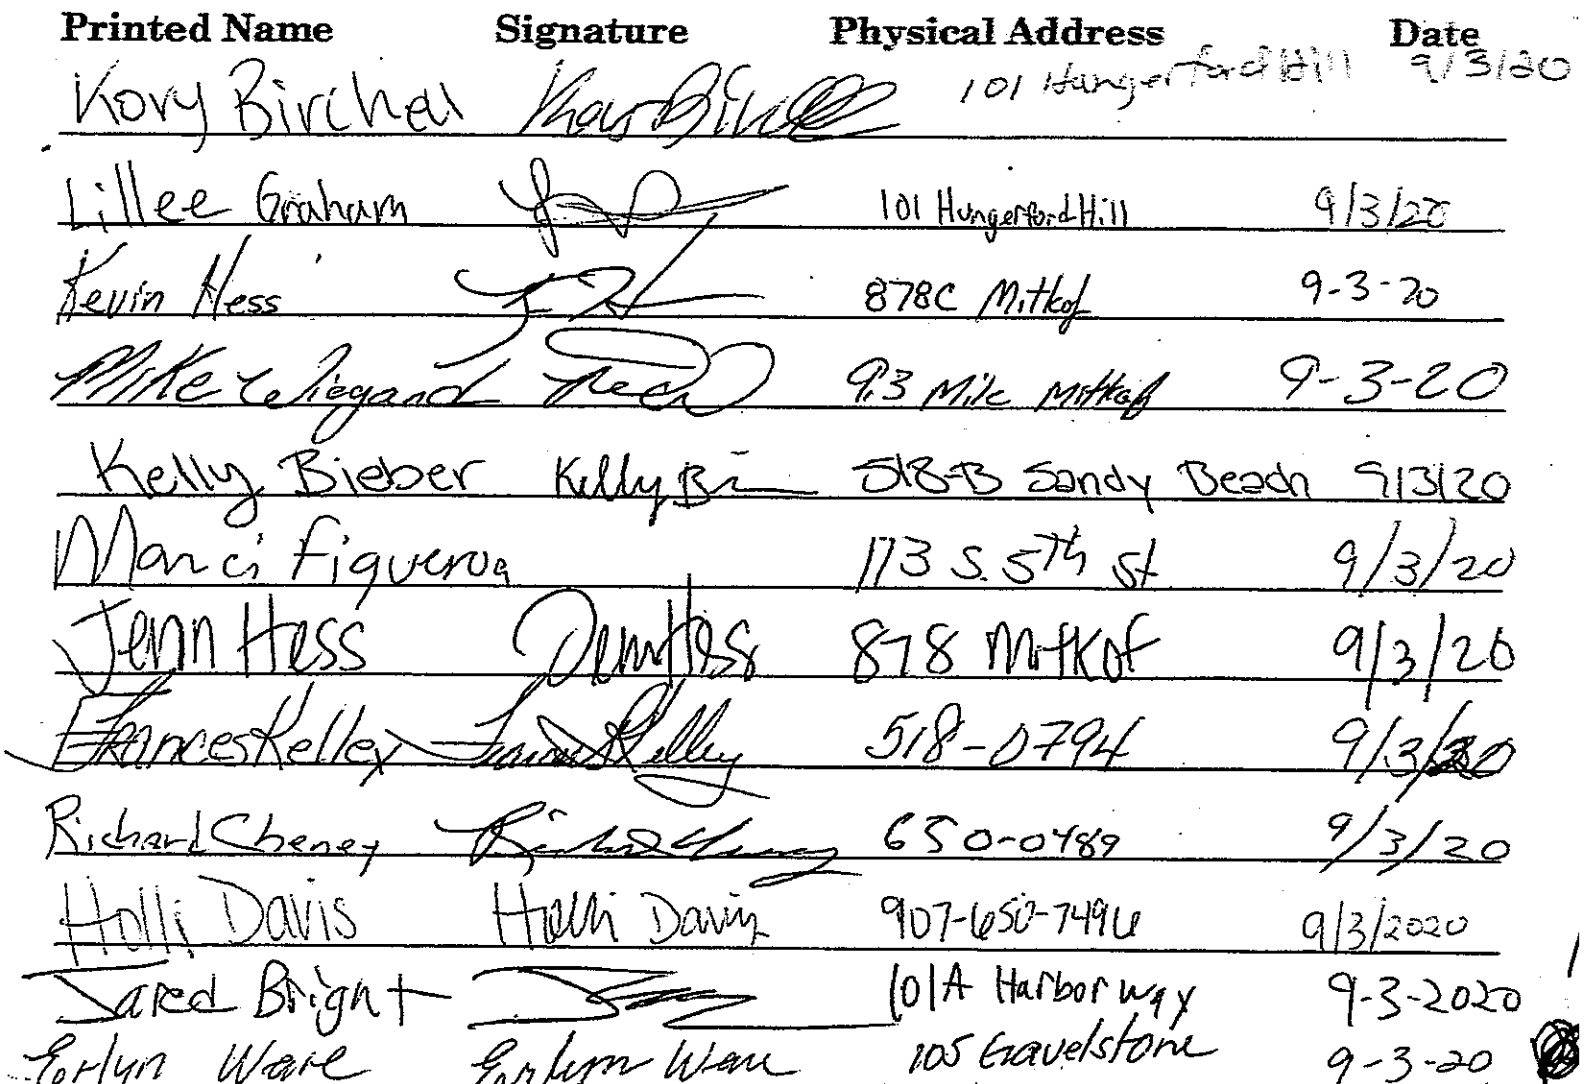 Printed Name Signature Physical Address Date
Kory Birchell 101 Hungerford Hill 9/3/20
Lillee Graham 101 Hungerford Hill 9/3/20
Kevin Hess 878C Mitkof 9-3-20
Mike Wiegand 9.3 Mile Mitkof 9-3-20
Kelly Bieber Kelly Bi 518-B Sandy Beach 9/3/20
Marci Figueroa 173 S. 5th St 9/3/20
Jenn Hess Jenn Hess 878 Mitkof 9/3/20
Frances Kelley Frances Kelley 518-0794 9/3/20
Richard Cheney Richard Cheney 650-0489 9/3/20
Holli Davis Holli Davis 907-650-7496 9/3/2020
Jared Bright 101A Harbor Way 9-3-2020
Ware Ware 105 Gravelstone 9-3-20